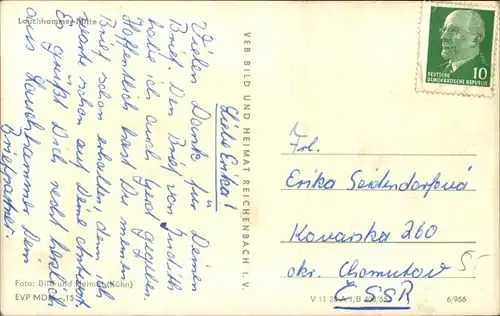 Lauchhammer-Mitte
Liebe Erika!
Vielen Dank für Deinen
Brief. Den Brief von Judith
habe ich auch gegeben.
Hoffentlich hast Du meinen
Brief schon erhalten, denn ich
warte schon auf Deine Antwort.
Es grüßt Dich recht herzlich
aus Lauchhammer Dein
Briefpartner.
Foto: Bild und Heimat (Kühn)
EVP MDN -,15
VEB BILD UND HEIMAT REICHENBACH I. V.
10
DEUTSCHE
DEMOKRATISCHE REPUBLIK
Frl.
Erika Seidendorfová
Kovarska 260
okr. Chomutov
ČSSR
5-
V 11 28 A 1/B
6/966